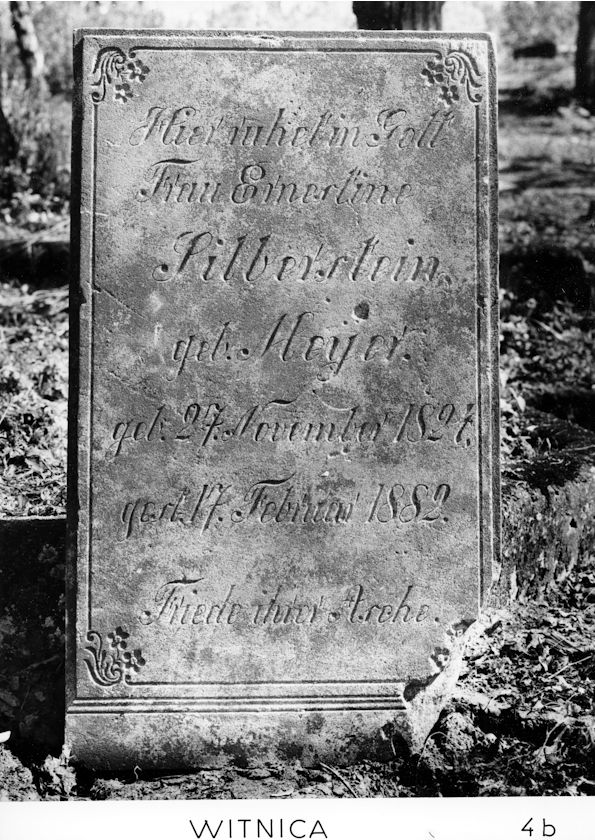 Hier ruhet in Gott
Frau Ernestine
Silberstein,
geb. Meyer.
geb. 27. November 1824,
gest. 17. Februar 1882.
Friede ihrer Asche.
WITNICA 4b